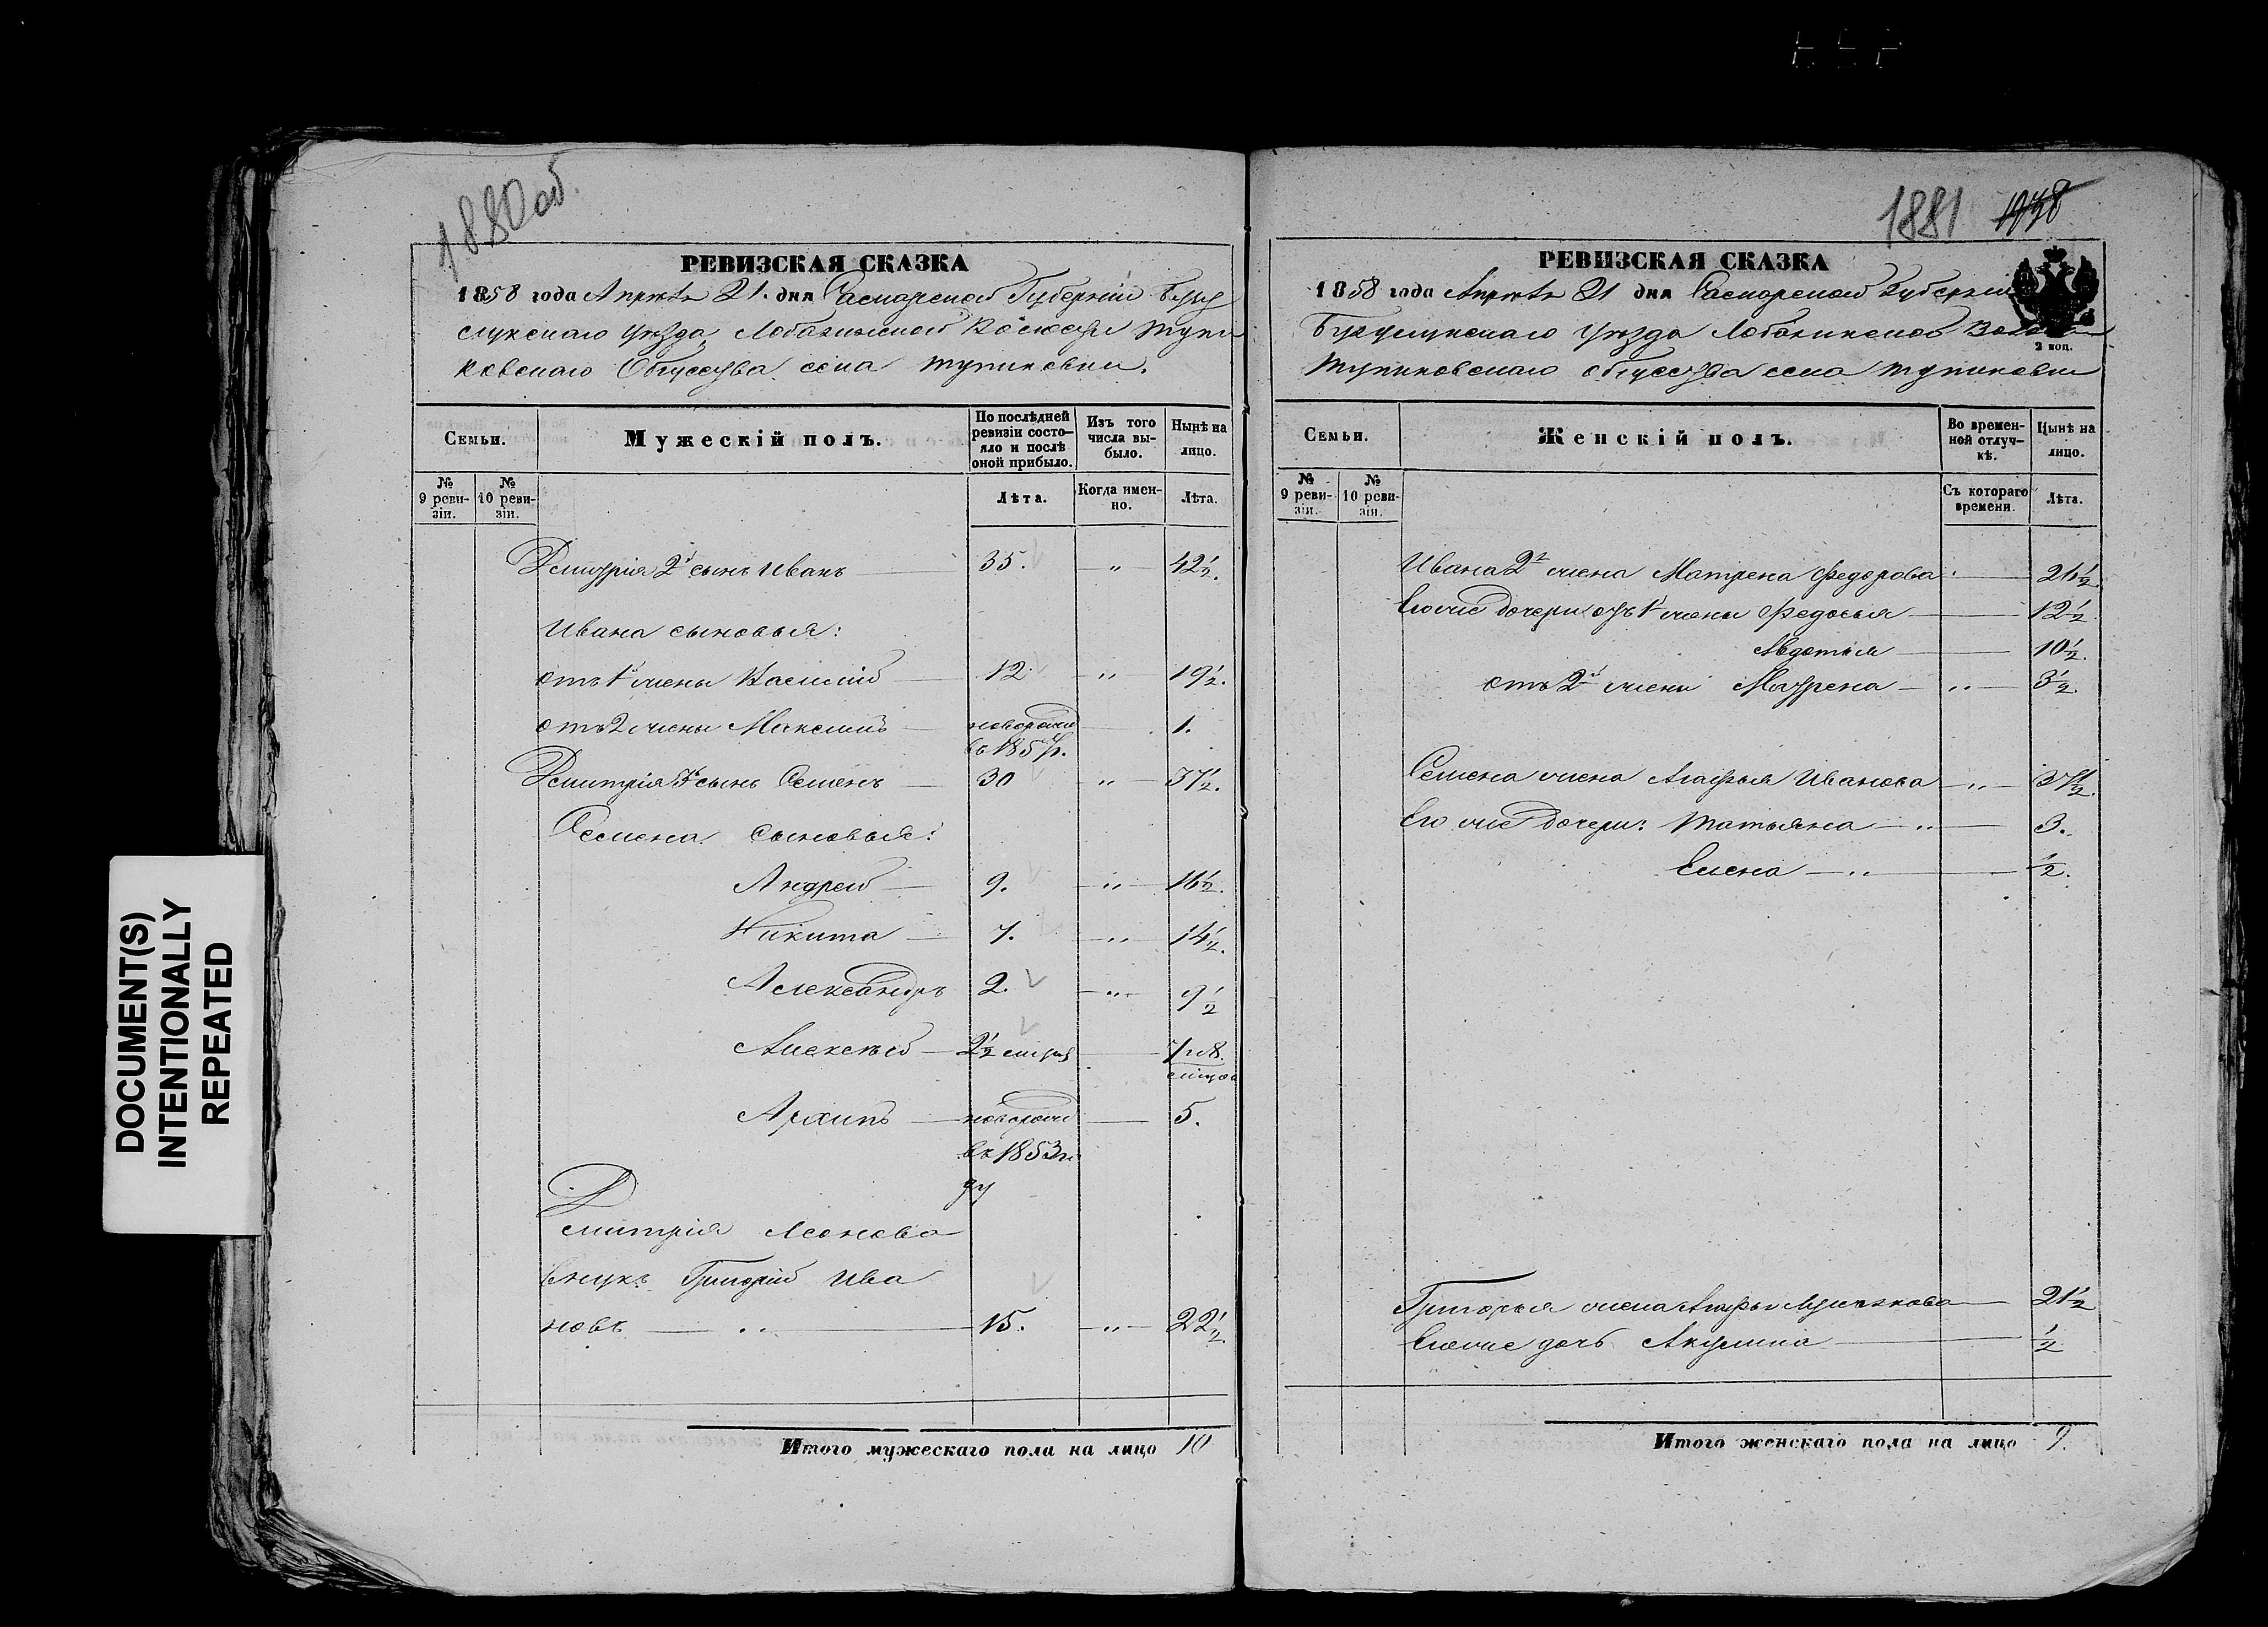 DOCUMENT(S)
INTENTIONALLY
REPEATED
1880 об.
РЕВИЗСКАЯ СКАЗКА
1858 года Апрѣля 21. дня Самарской Губерніи Бугу
русланскаго уѣзда, Волости Тупи
ковскаго Общества села Тупиковки.
Семьи.
Мужескій полъ.
По послѣдней ревизіи состояло и послѣ оной прибыло.
Изъ того числа выбыло.
Нынѣ на лицо.
№ 9 ревизіи.
№ 10 ревизіи.
Лѣта.
Когда именно.
Лѣта.
Дмитрія 2й сынъ Иванъ 35. " 42½.
Ивана сыновья:
отъ 1й жены Василій 12 " 19½.
отъ 2 жены Максимъ новорожд 1.
въ 1857 г.
Дмитрія 3й сынъ Семенъ 30 " 37½.
Семена сыновья:
Андрей 9. " 16½.
Никита 7. " 14½.
Александръ 2. " 9½
Алексѣй 2½ 7 8.
Архипъ новорожд 5.
въ 1853 го
ду
Дмитрія Леонова
внукъ Григорій Ива
новъ " 15. " 22½.
Итого мужескаго пола на лицо 10
1881 1938
РЕВИЗСКАЯ СКАЗКА
1858 года Апрѣля 21 дня Самарской Губерніи
уѣзда
Тупиковскаго общества села Тупиковки
2 коп.
Семьи.
Женскій полъ.
Во временной отлучкѣ.
Нынѣ на лицо.
№ 9 ревизіи.
№ 10 ревизіи.
Съ котораго времени.
Лѣта.
Ивана 2я жена Матрена Федорова 26½
Его же дочери отъ 1й жены Федосья 12½
Авдотья 10½.
отъ 2й жены Матрена " 3½
Семена жена Агафья Иванова " 37½.
Его же дочери: Татьяна " 3.
Елена " ½.
Григорья жена 21½
Его же дочь Акулина ½
Итого женскаго пола на лицо 9.